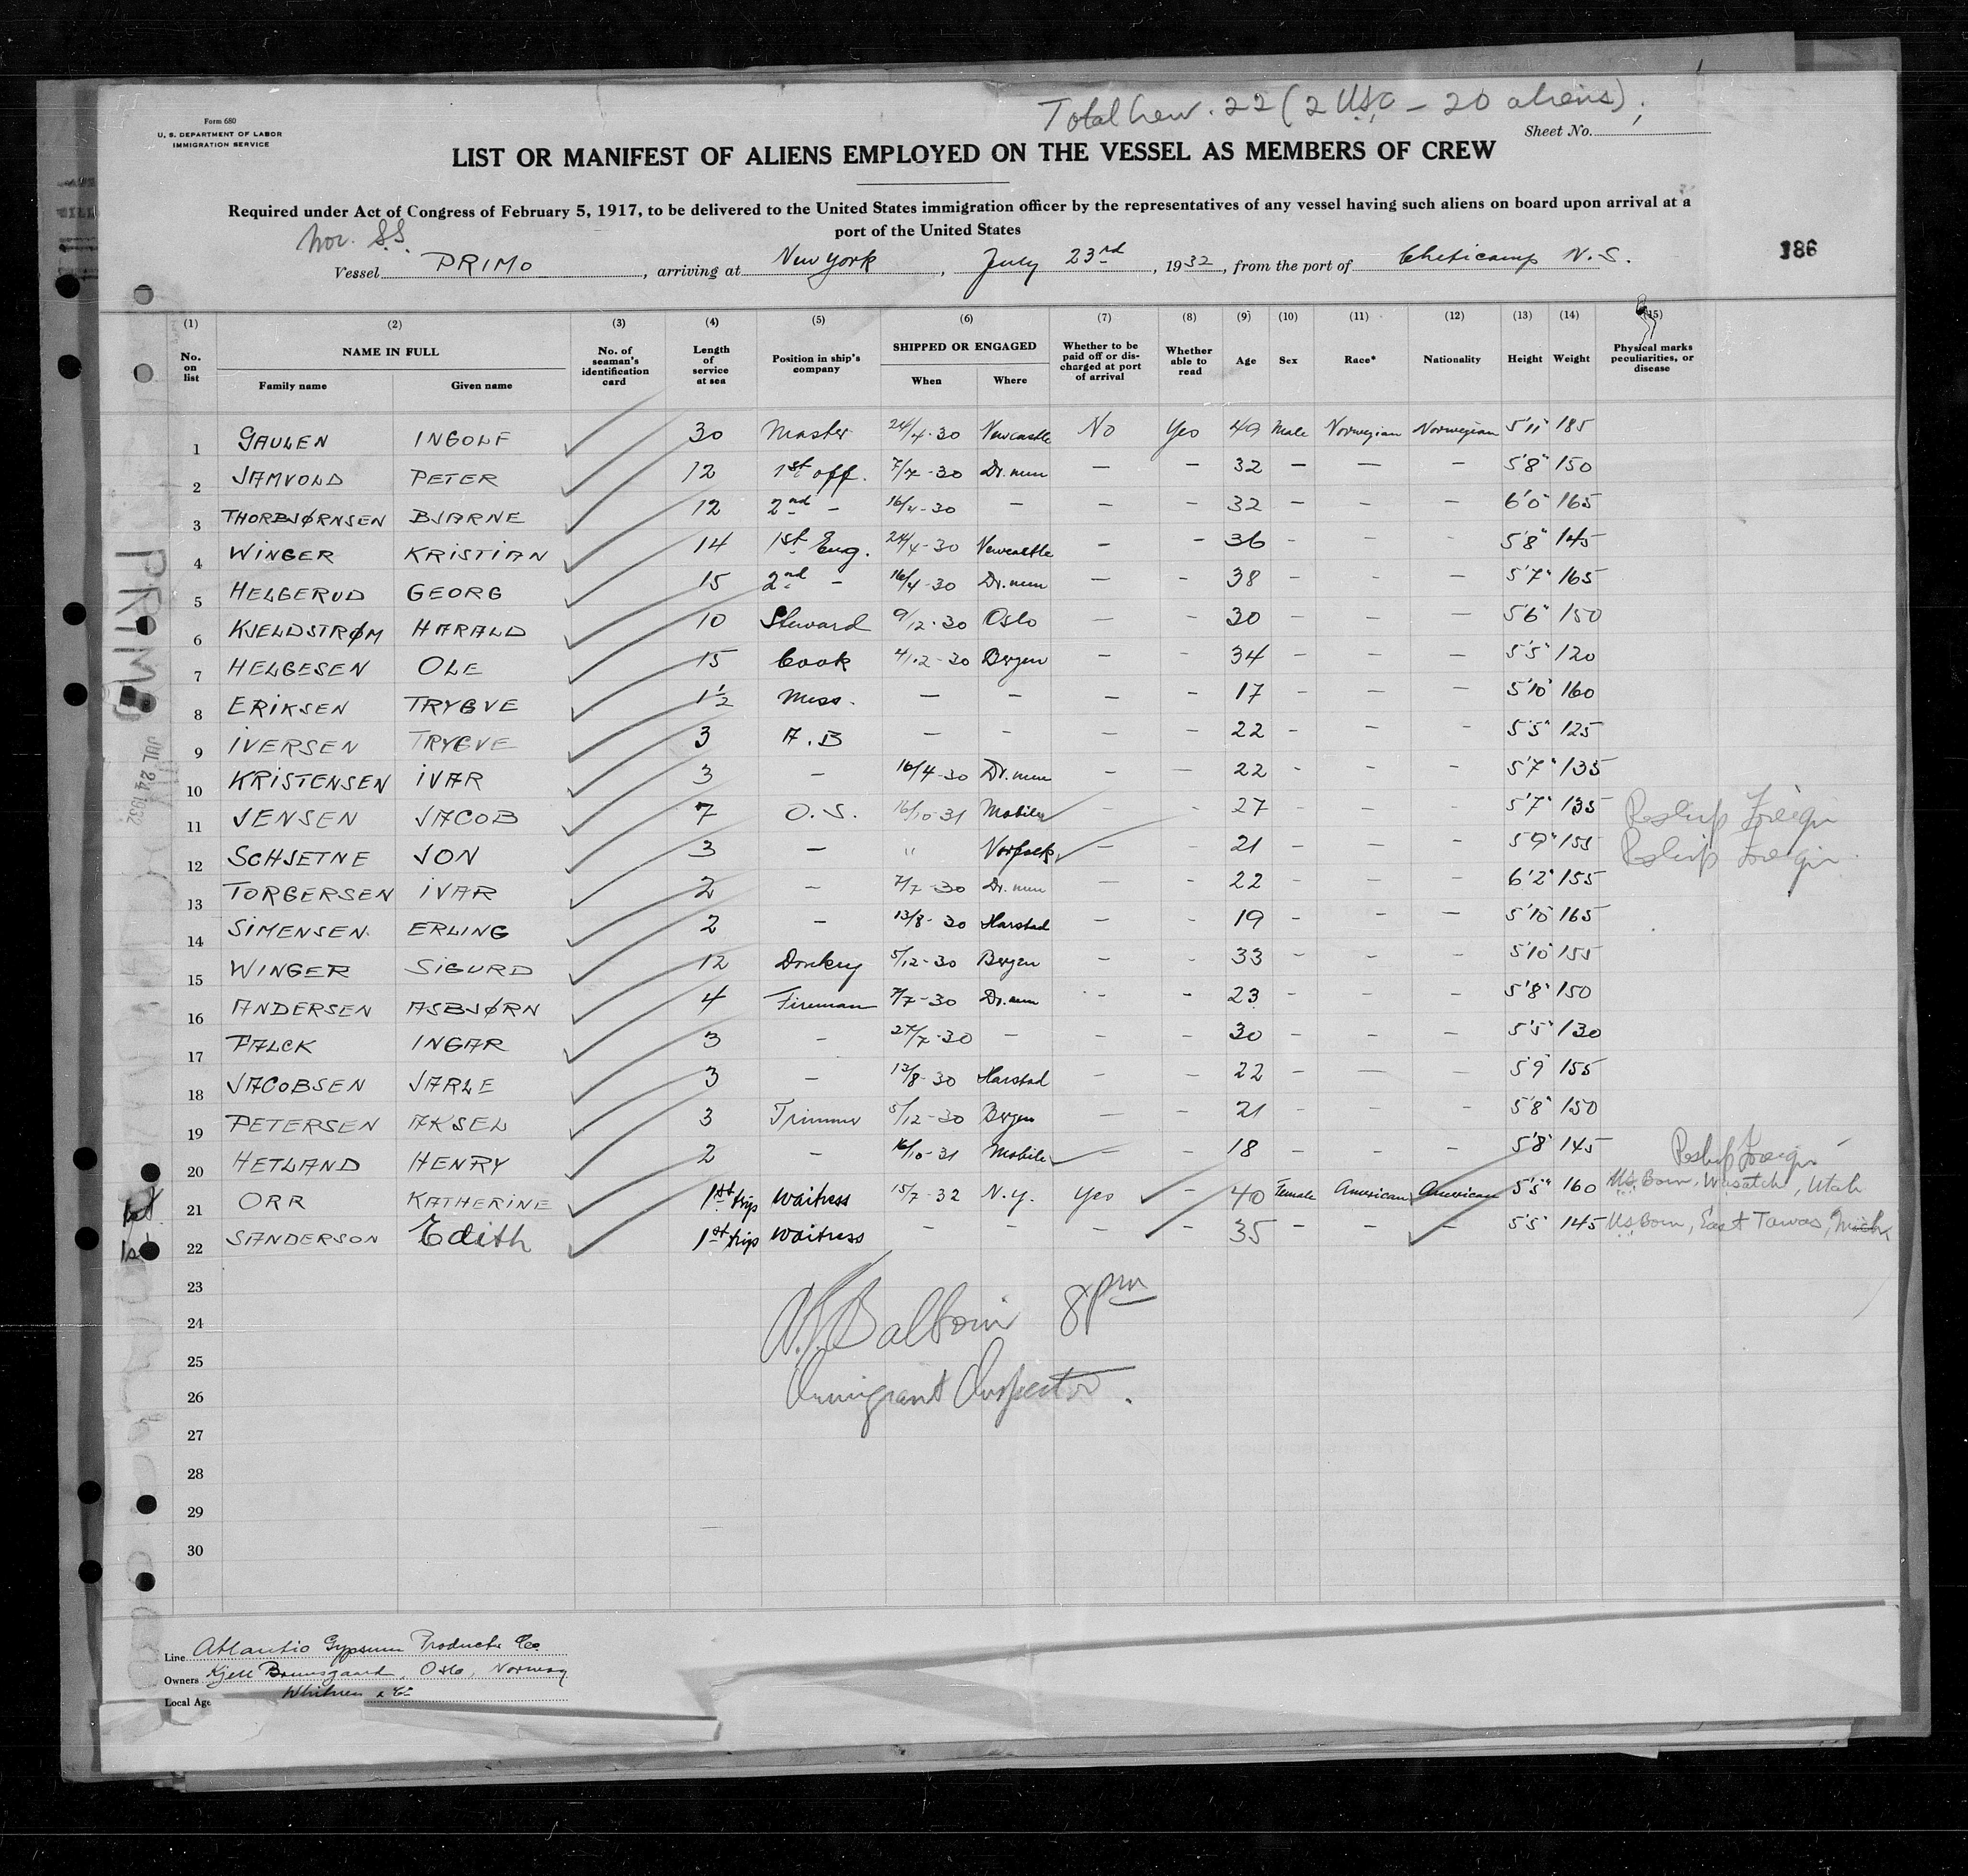 Total Crew. 22 (2 USC - 20 aliens);
Form 680
U. S. DEPARTMENT OF LABOR
IMMIGRATION SERVICE
Sheet No.
LIST OR MANIFEST OF ALIENS EMPLOYED ON THE VESSEL AS MEMBERS OF CREW
Required under Act of Congress of February 5, 1917, to be delivered to the United States immigration officer by the representatives of any vessel having such aliens on board upon arrival at a
port of the United States
Nor. S.S.
Vessel PRIMO, arriving at New York, July 23rd, 1932, from the port of Cheticamp N.S.
186
(1) (2) (3) (4) (5) (6) (7) (8) (9) (10) (11) (12) (13) (14) (15)
No. on list NAME IN FULL Family name Given name No. of seaman's identification card Length of service at sea Position in ship's company SHIPPED OR ENGAGED When Where Whether to be paid off or discharged at port of arrival Whether able to read Age Sex Race* Nationality Height Weight Physical marks peculiarities, or disease
1 GAULEN INGOLF 30 Master 24/4-30 Newcastle No Yes 49 Male Norwegian Norwegian 5'11" 185
2 JAMVOLD PETER 12 1st off. 7/7-30 Dr.mm — — 32 — — — 5'8" 150
3 THORBJØRNSEN BJARNE 12 2nd — 16/4-30 — — — 32 — — — 6'0" 165
4 WINGER KRISTIAN 14 1st Eng. 24/4-30 Newcastle — — 36 — — — 5'8" 145
5 HELGERUD GEORG 15 2nd — 16/4-30 Dr.mm — — 38 — — — 5'7" 165
6 KJELDSTRØM HARALD 10 Steward 9/12-30 Oslo — — 30 — — — 5'6" 150
7 HELGESEN OLE 15 Cook 4/12-30 Bergen — — 34 — — — 5'5" 120
8 ERIKSEN TRYGVE 1½ Mess. — — — — 17 — — — 5'10" 160
9 IVERSEN TRYGVE 3 A.B — — — — 22 — — — 5'5" 125
10 KRISTENSEN IVAR 3 — 16/4-30 Dr.mm — — 22 — — — 5'7" 135
11 JENSEN JACOB 7 O.S. 16/10-31 Mobile — 27 — — — 5'7" 135 Reship Foreign
12 SCHJETNE JON 3 — " Norfolk — — 21 — — — 5'9" 155 Reship Foreign
13 TORGERSEN IVAR 2 — 7/7-30 Dr.mm — — 22 — — — 6'2" 155
14 SIMENSEN ERLING 2 — 13/8-30 Harstad — — 19 — — — 5'10" 165
15 WINGER SIGURD 12 Donkey 5/12-30 Bergen — — 33 — — — 5'10" 155
16 ANDERSEN ASBJØRN 4 Fireman 7/7-30 Dr.mm — — 23 — — — 5'8" 150
17 FALCK INGAR 3 — 27/7-30 — — — 30 — — — 5'5" 130
18 JACOBSEN JARLE 3 — 13/8-30 Harstad — — 22 — — — 5'9" 155
19 PETERSEN AKSEL 3 Trimmer 5/12-30 Bergen — — 21 — — — 5'8" 150
20 HETLAND HENRY 2 — 16/10-31 Mobile — — 18 — — — 5'8" 145 Reship Foreign
21 ORR KATHERINE 1st trip Waitress 15/7-32 N.Y. Yes — 40 Female American American 5'5" 160 U.S. Born, Wasatch, Utah
22 SANDERSON Edith 1st trip Waitress — — — — 35 — — — 5'5" 145 U.S. Born, East Tawas, Mich
23
24
25
26
27
28
29
30
8 pm
Immigrant Inspector.
PRIMO
JUL 24 1932
Line Atlantic Gypsum Products Co.
Owners Kjell Oslo, Norway
Local Age